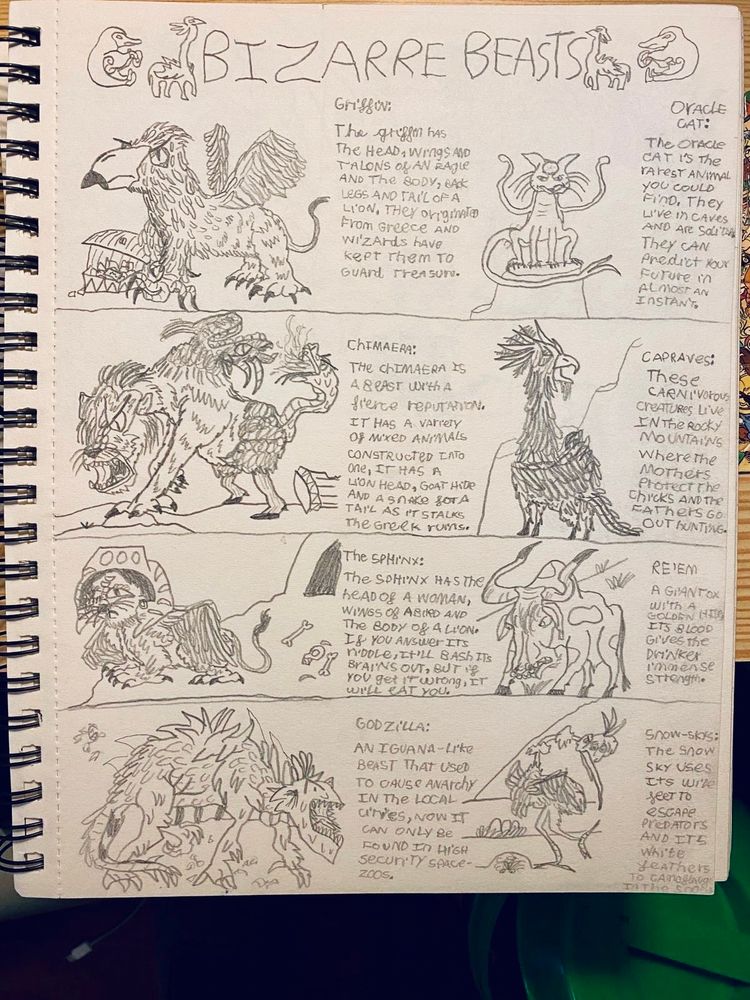 BIZARRE BEASTS
Griffin:
The griffin has
the head, wings and
talons of an eagle
and the body, back
legs and tail of a
lion. They originated
from Greece and
wizards have
kept them to
guard treasure.
ORACLE
CAT:
The Oracle
cat is the
rarest animal
you could
find. They
live in caves
and are solitary
They can
predict your
future in
almost an
instant.
CHIMAERA:
The chimaera is
a beast with a
fierce reputation.
It has a variety
of mixed animals
constructed into
one, it has a
lion head, goat hide
and a snake for a
tail as it stalks
the Greek ruins.
CAPRAVES:
These
carnivorous
creatures live
in the rocky
mountains
where the
mothers
protect the
chicks and the
fathers go
out hunting.
The SPHINX:
The sphinx has the
head of a woman,
wings of a bird and
the body of a lion.
If you answer its
riddle, it'll bash its
brains out, but if
you get it wrong, it
will eat you.
RE'EM
A giant ox
with a
golden hide
its blood
gives the
drinker
immense
strength.
GODZILLA:
An iguana-like
beast that used
to cause anarchy
in the local
cities, now it
can only be
found in high
security space-
zoos.
SNOW-SKYS:
The snow
sky uses
its wide
feet to
escape
predators
and its
white
feathers
to camouflage
in the snow